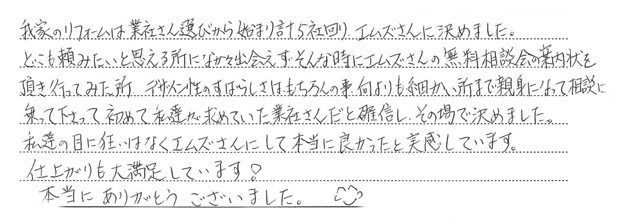 我家のリフォームは業社さん選びから始まり計5社回り エムズさんに決めました。
どこも頼みたいと思える所になかなか出会えず そんな時にエムズさんの無料相談会の案内状を
頂き行ってみた所 デザイン性のすばらしさはもちろんの事 何よりも細かい所まで親身になって相談に
乗って下さって 初めて私達が求めていた業社さんだと確信し、その場で決めました。
私達の目に狂いはなくエムズさんにして本当に良かったと実感しています。
仕上がりも大満足しています?
本当に ありがとう ございました。